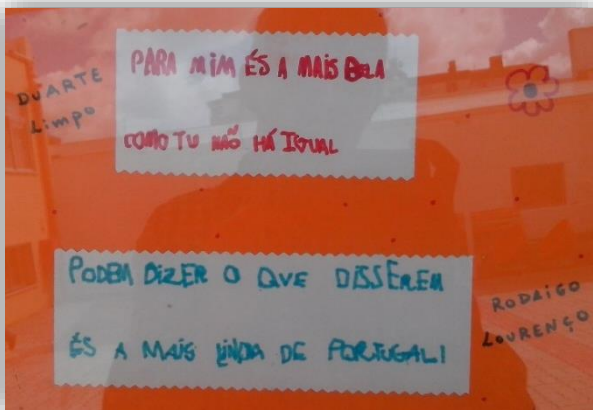 DUARTE
Limpo
PARA MIM ÉS A MAIS BELA
COMO TU NÃO HÁ IGUAL
PODEM DIZER O QUE DISSEREM
ÉS A MAIS LINDA DE PORTUGAL!
RODRIGO
LOURENÇO